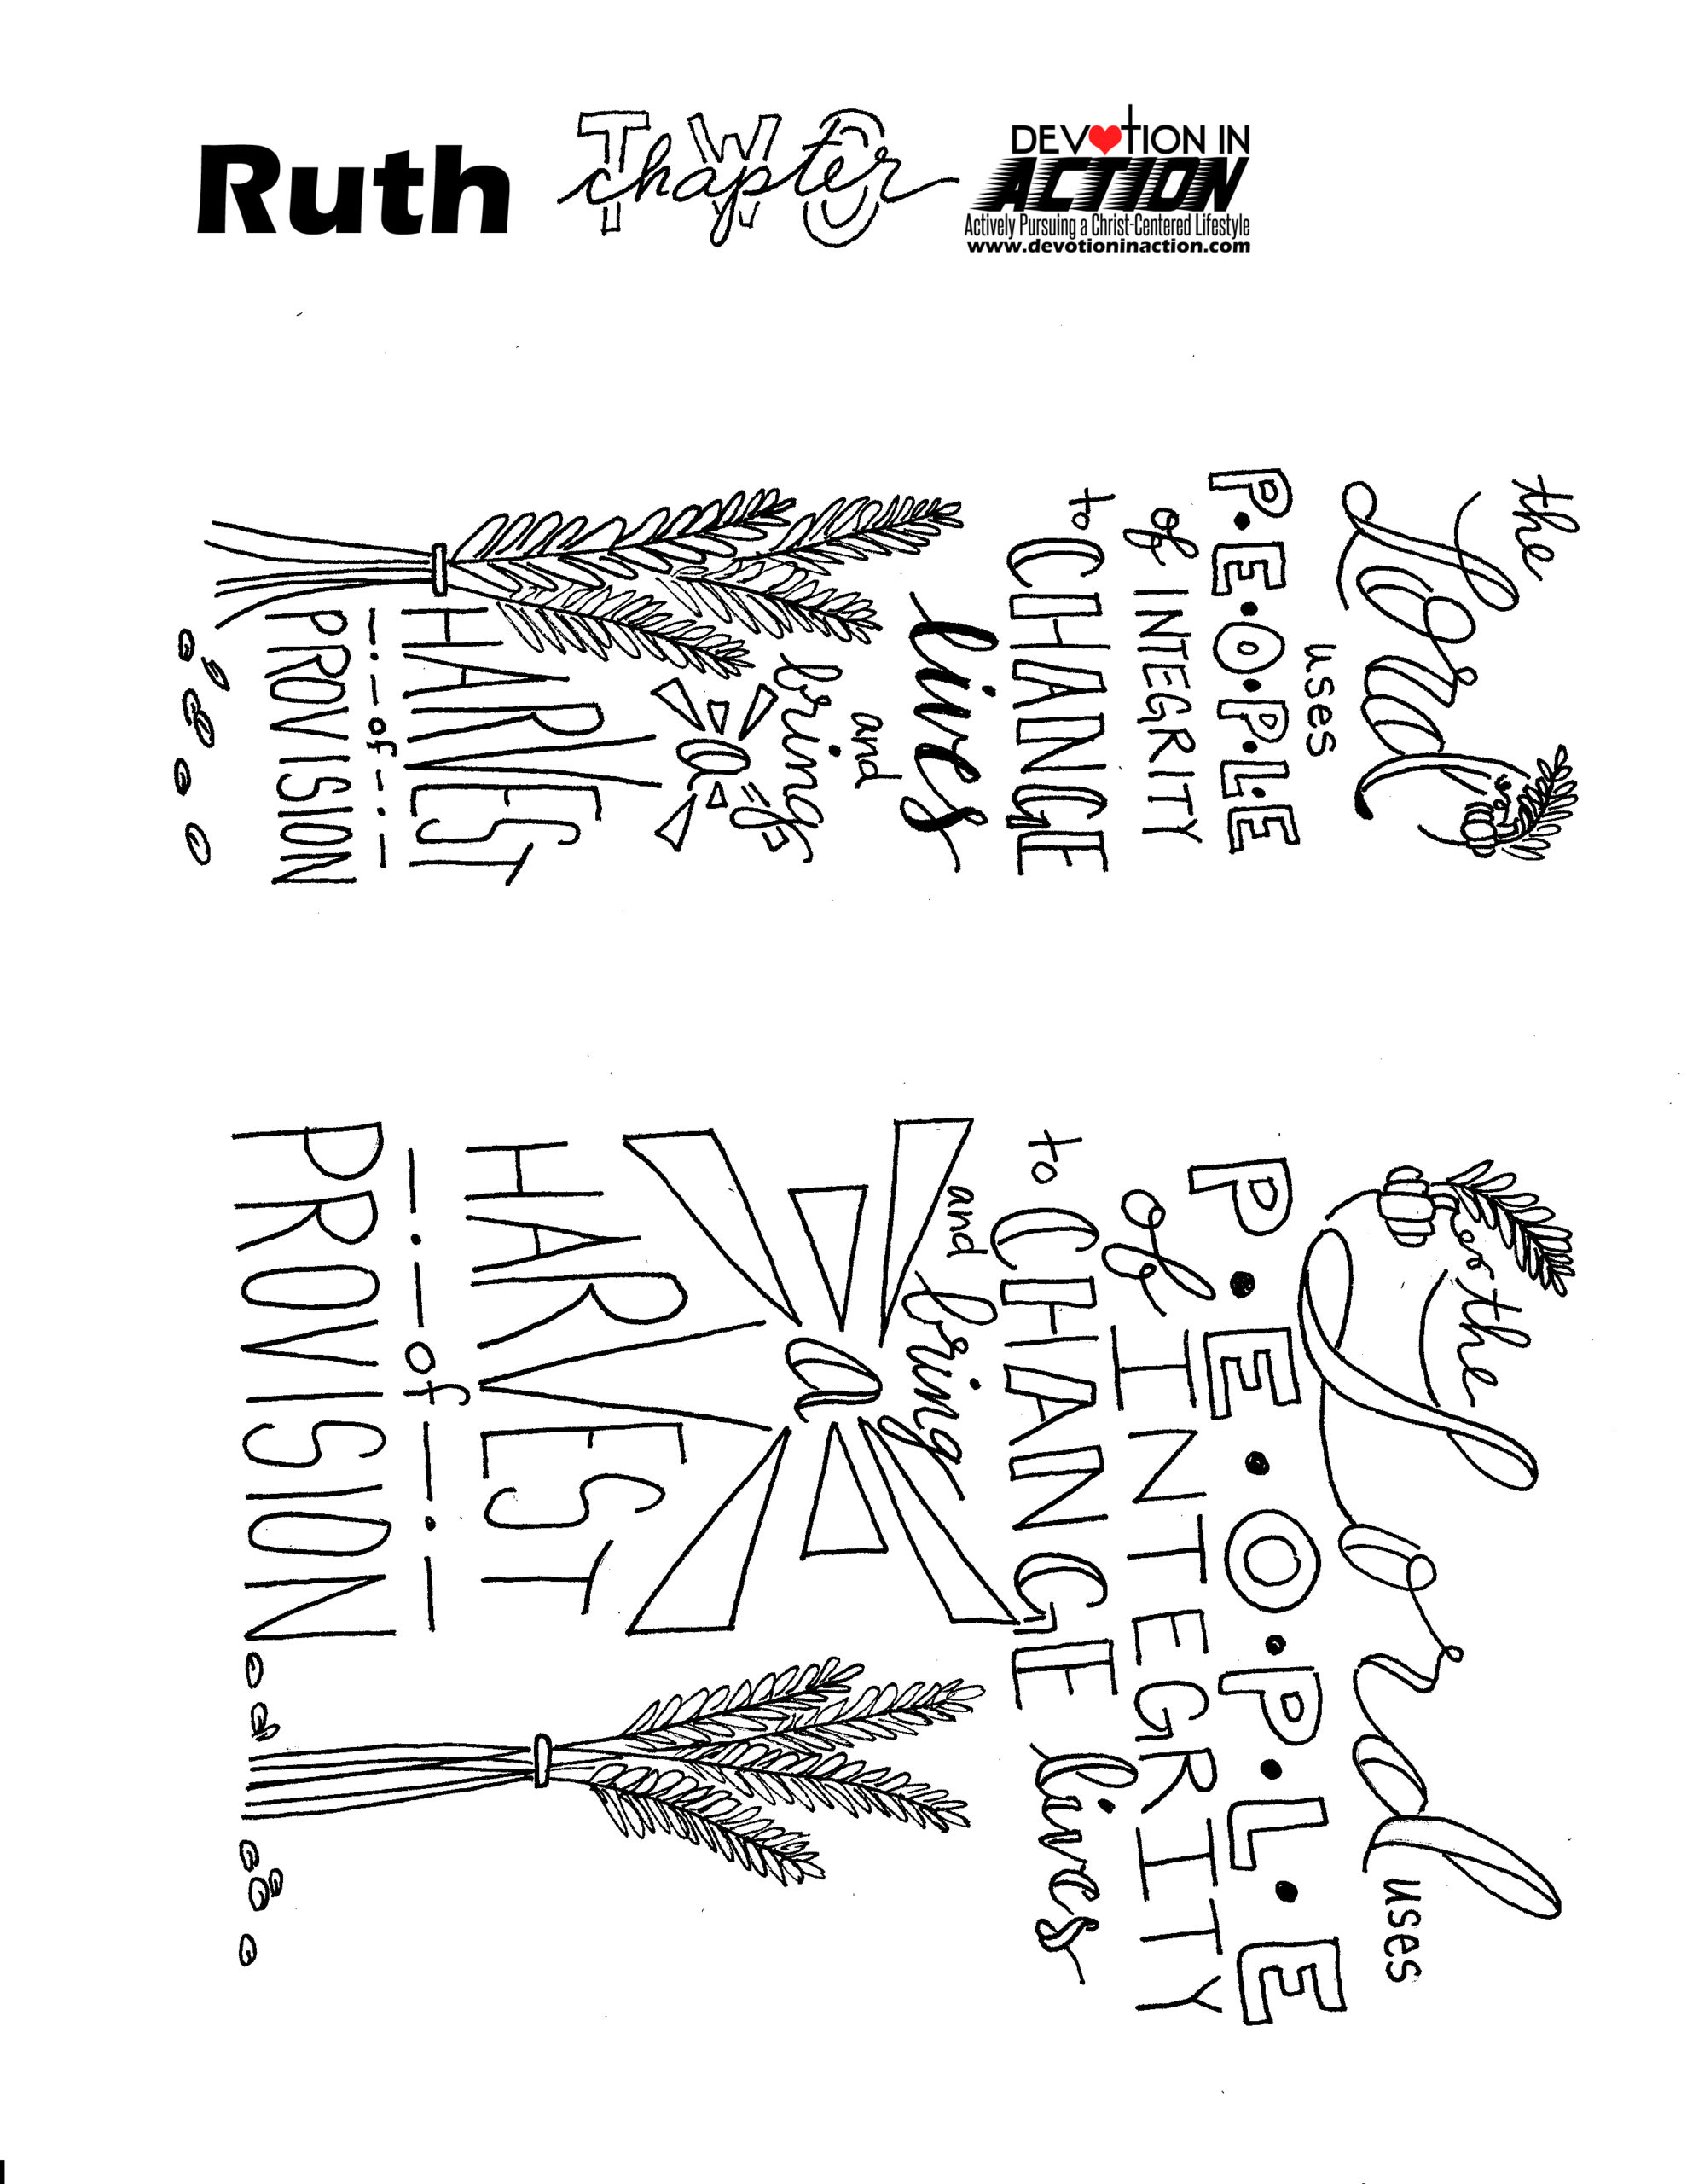 Ruth
Chapter
TWO
DEVOTION IN
ACTION
Actively Pursuing a Christ-Centered Lifestyle
www.devotioninaction.com
the
Lord
uses
P·E·O·P·L·E
of INTEGRITY
to CHANGE
lives
and
bring
a
HARVEST
of
PROVISION
for the
Lord uses
P·E·O·P·L·E
of INTEGRITY
to CHANGE lives
and bring
a
HARVEST
of
PROVISION